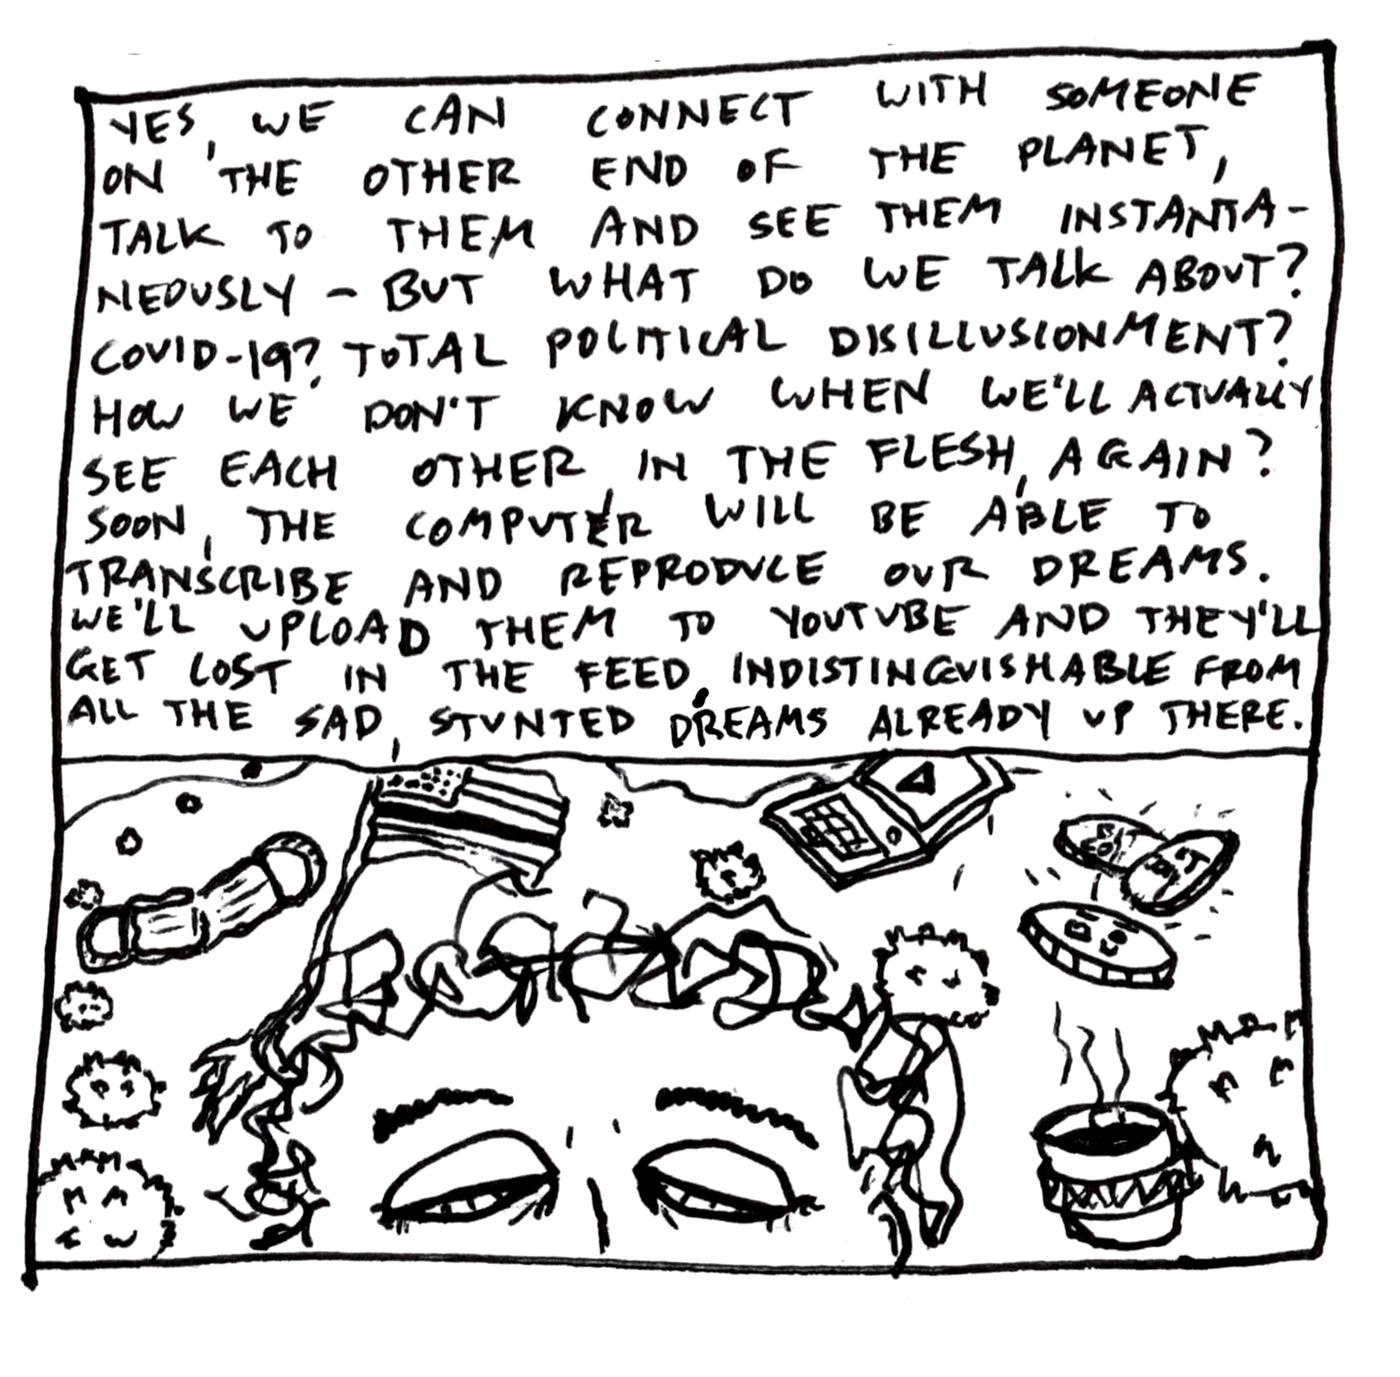 YES, WE CAN CONNECT WITH SOMEONE
ON THE OTHER END OF THE PLANET,
TALK TO THEM AND SEE THEM INSTANTA-
NEOUSLY - BUT WHAT DO WE TALK ABOUT?
COVID-19? TOTAL POLITICAL DISILLUSIONMENT?
HOW WE DON'T KNOW WHEN WE'LL ACTUALLY
SEE EACH OTHER IN THE FLESH, AGAIN?
SOON, THE COMPUTER WILL BE ABLE TO
TRANSCRIBE AND REPRODUCE OUR DREAMS.
WE'LL UPLOAD THEM TO YOUTUBE AND THEY'LL
GET LOST IN THE FEED, INDISTINGUISHABLE FROM
ALL THE SAD, STUNTED DREAMS ALREADY UP THERE.